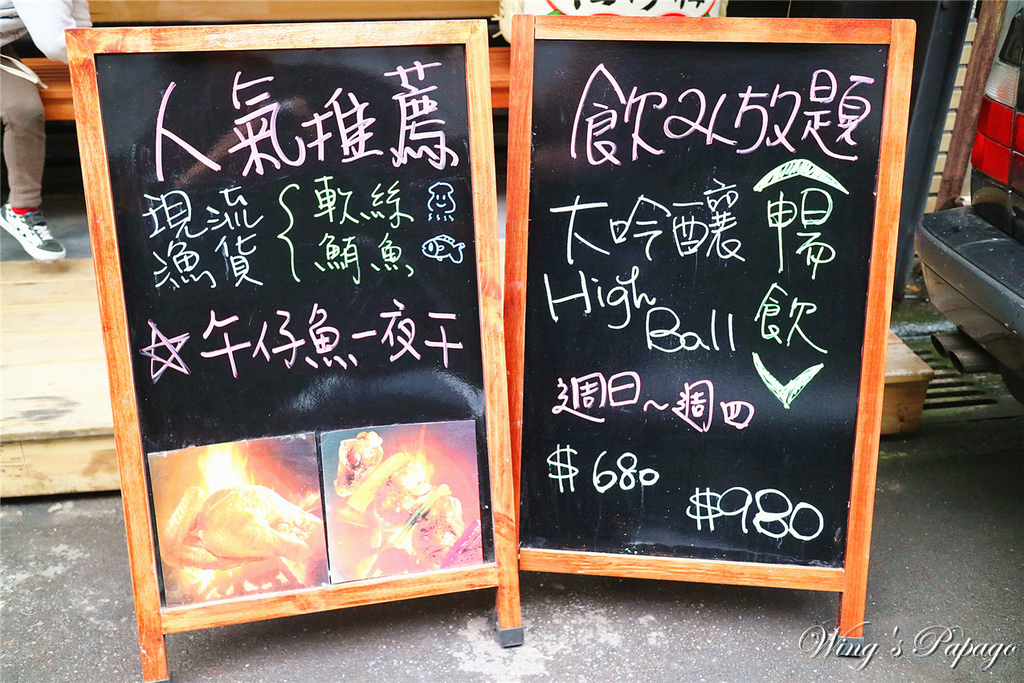 人氣推薦
現流
漁貨
軟絲
鮪魚
☆午仔魚一夜干
飲み放題
大吟釀
High
Ball
暢
飲
週日~週四
$680
$980
Wing's Papago